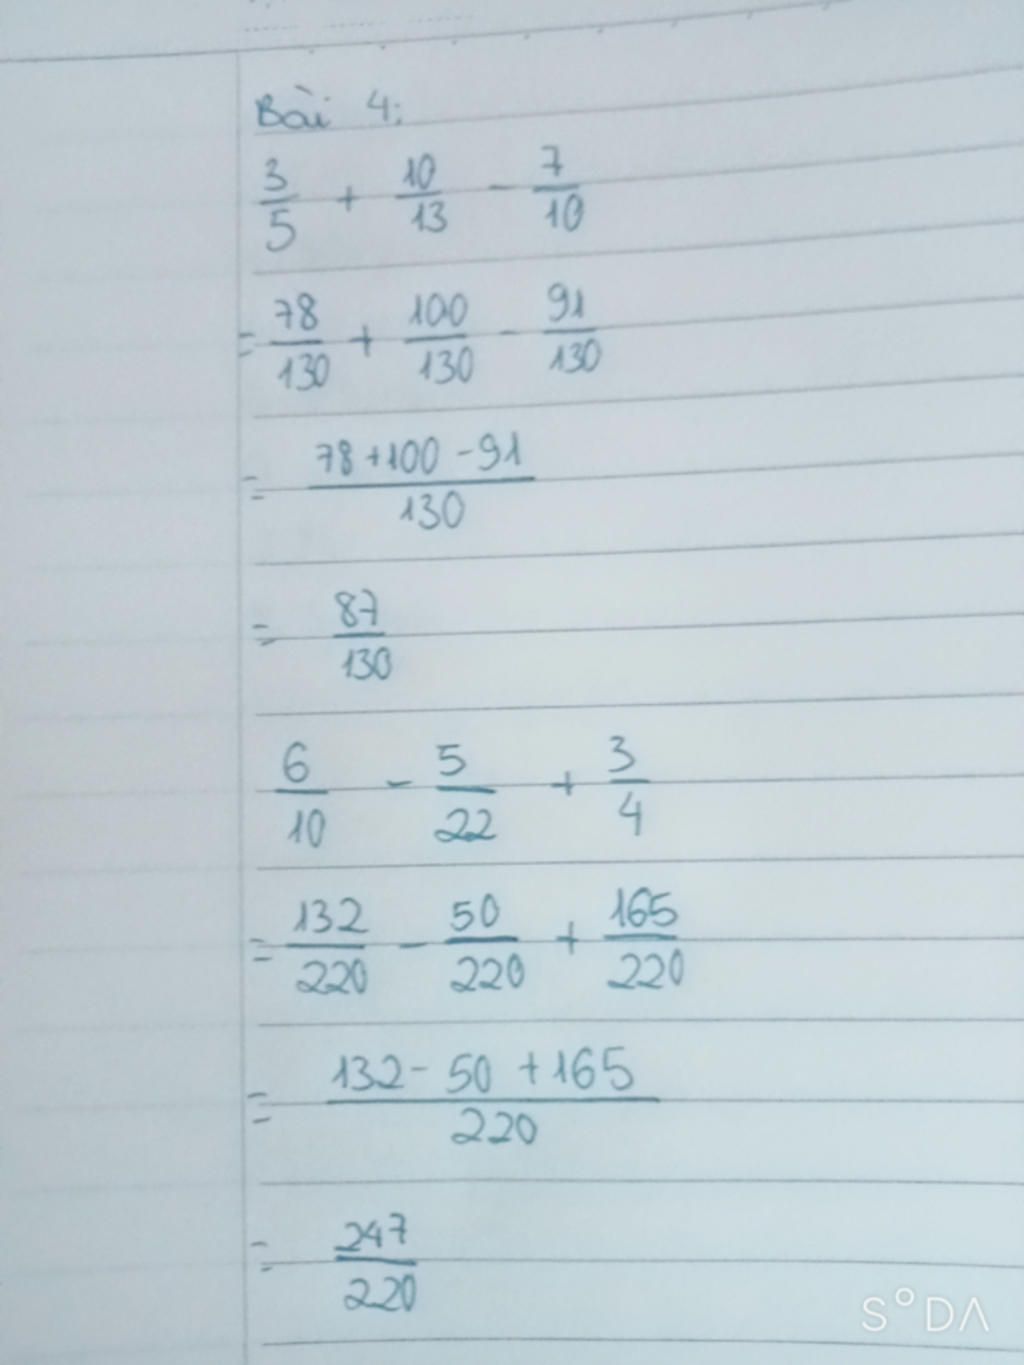 Bài 4:
3/5 + 10/13 - 7/10
= 78/130 + 100/130 - 91/130
= (78 + 100 - 91)/130
= 87/130
6/10 - 5/22 + 3/4
= 132/220 - 50/220 + 165/220
= (132 - 50 + 165)/220
= 247/220
S°DA